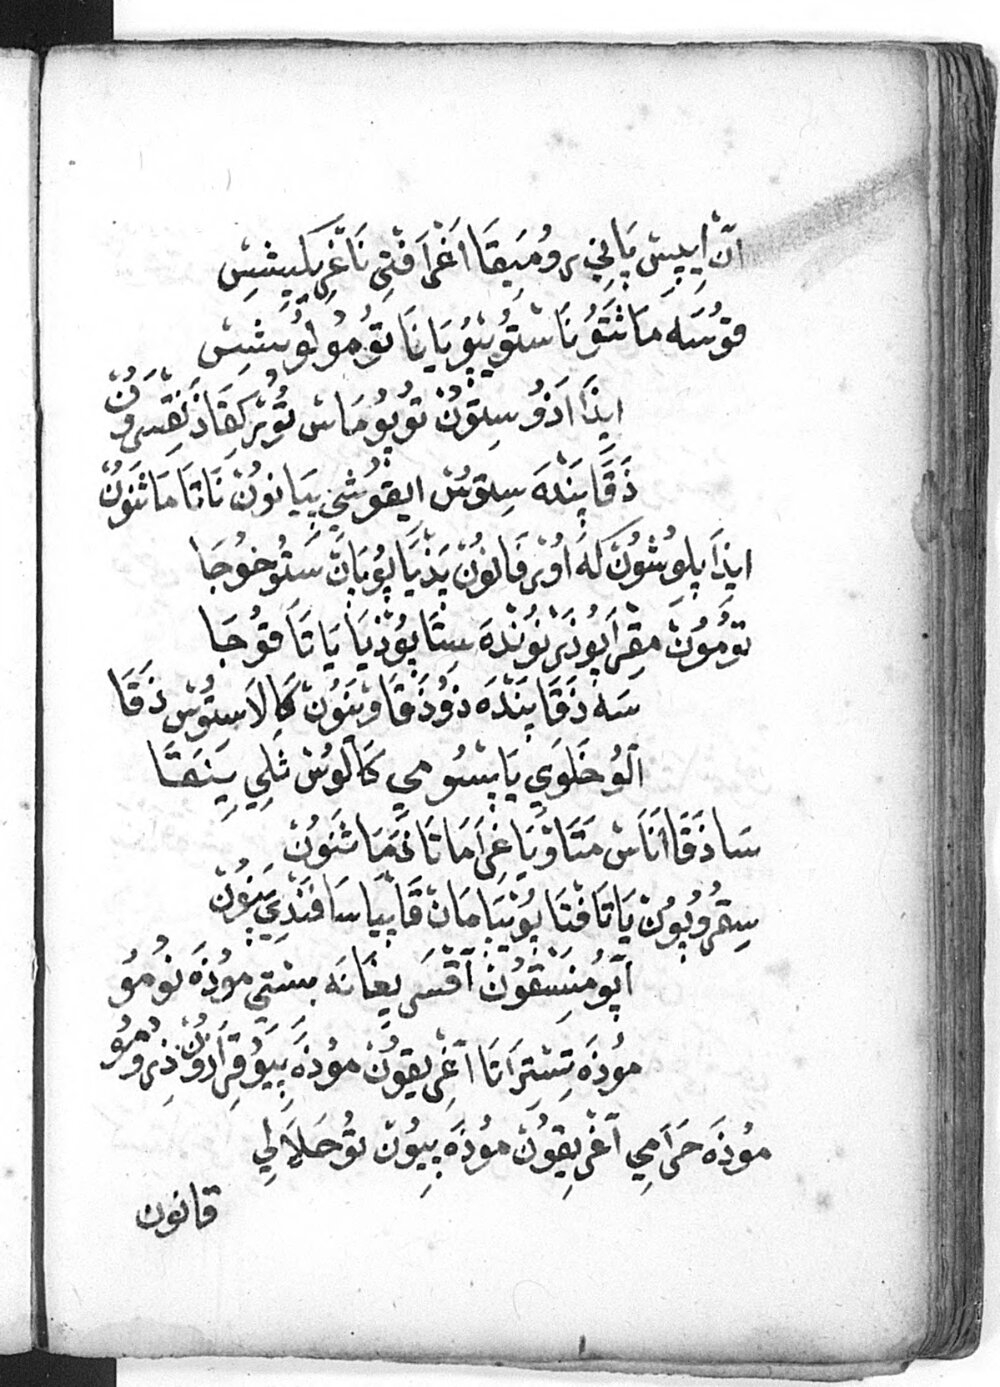 انّ اِيپِسْ پَانِي رُومَيِقَا اَغْرَافْتِي نَا غْرِيكِيشِسْ
قوُسَه مَاثَتَوُ نَا سْتوُ يْپوُ يَا نَا توُ مُولوُيِشِسْ
ايذَا اَذوُ سِتوُنْ توُپوُ مَاسْ توُرْكِقَا ذَنْقِسَرَوُنْ
ذَقَا پَنْدَه سِتوُسْ اليقوُشِي پِيَانوُنْ نَا تَا مَاثَنوُنْ
ايذَا پِلوُشوُنْ كَه اوُرْفَانوُنْ پَذْيَا پوُپَانْ سَتوُ خوُجَا
توُموُنْ مِقْرَا پوُذَرْنوُنْدَه سِتَا پوُذْيَا يَا تَا قوُجَا
سَه ذَقَا پَنْدَه ذوُذَقَا وْيَنوُنْ كَالَا سِتوُسْ ذَقَا
آلوُ خَلَوِي يَا پْسوُمِي كَالوُسْ ثَلِي يِنَقَا
سَا ذَقَا اَنَاسْ مَتَا وْيَا غْرَامَا تَا نَمَاثَنوُنْ
سِقرُوپوُنْ يَا تَا فْتَا پوُتْيَا مَانْ قَاپْيَا سَافَنْدِي يَنوُنْ
آپوُ مَنِسْقوُنْ آفْسَرْ يغَانَه پِسْتِي موُذَه نوُموُ
موُذَه تِسْتِرَاتَا آغْرِيقوُنْ موُذَه پِيوُ قْرَا زوُنْ ذِرُوموُ
موُذَه حَرَامِي آغْرِيقوُنْ موُذَه پِيوُنْ توُ حَلَالِي
قانون